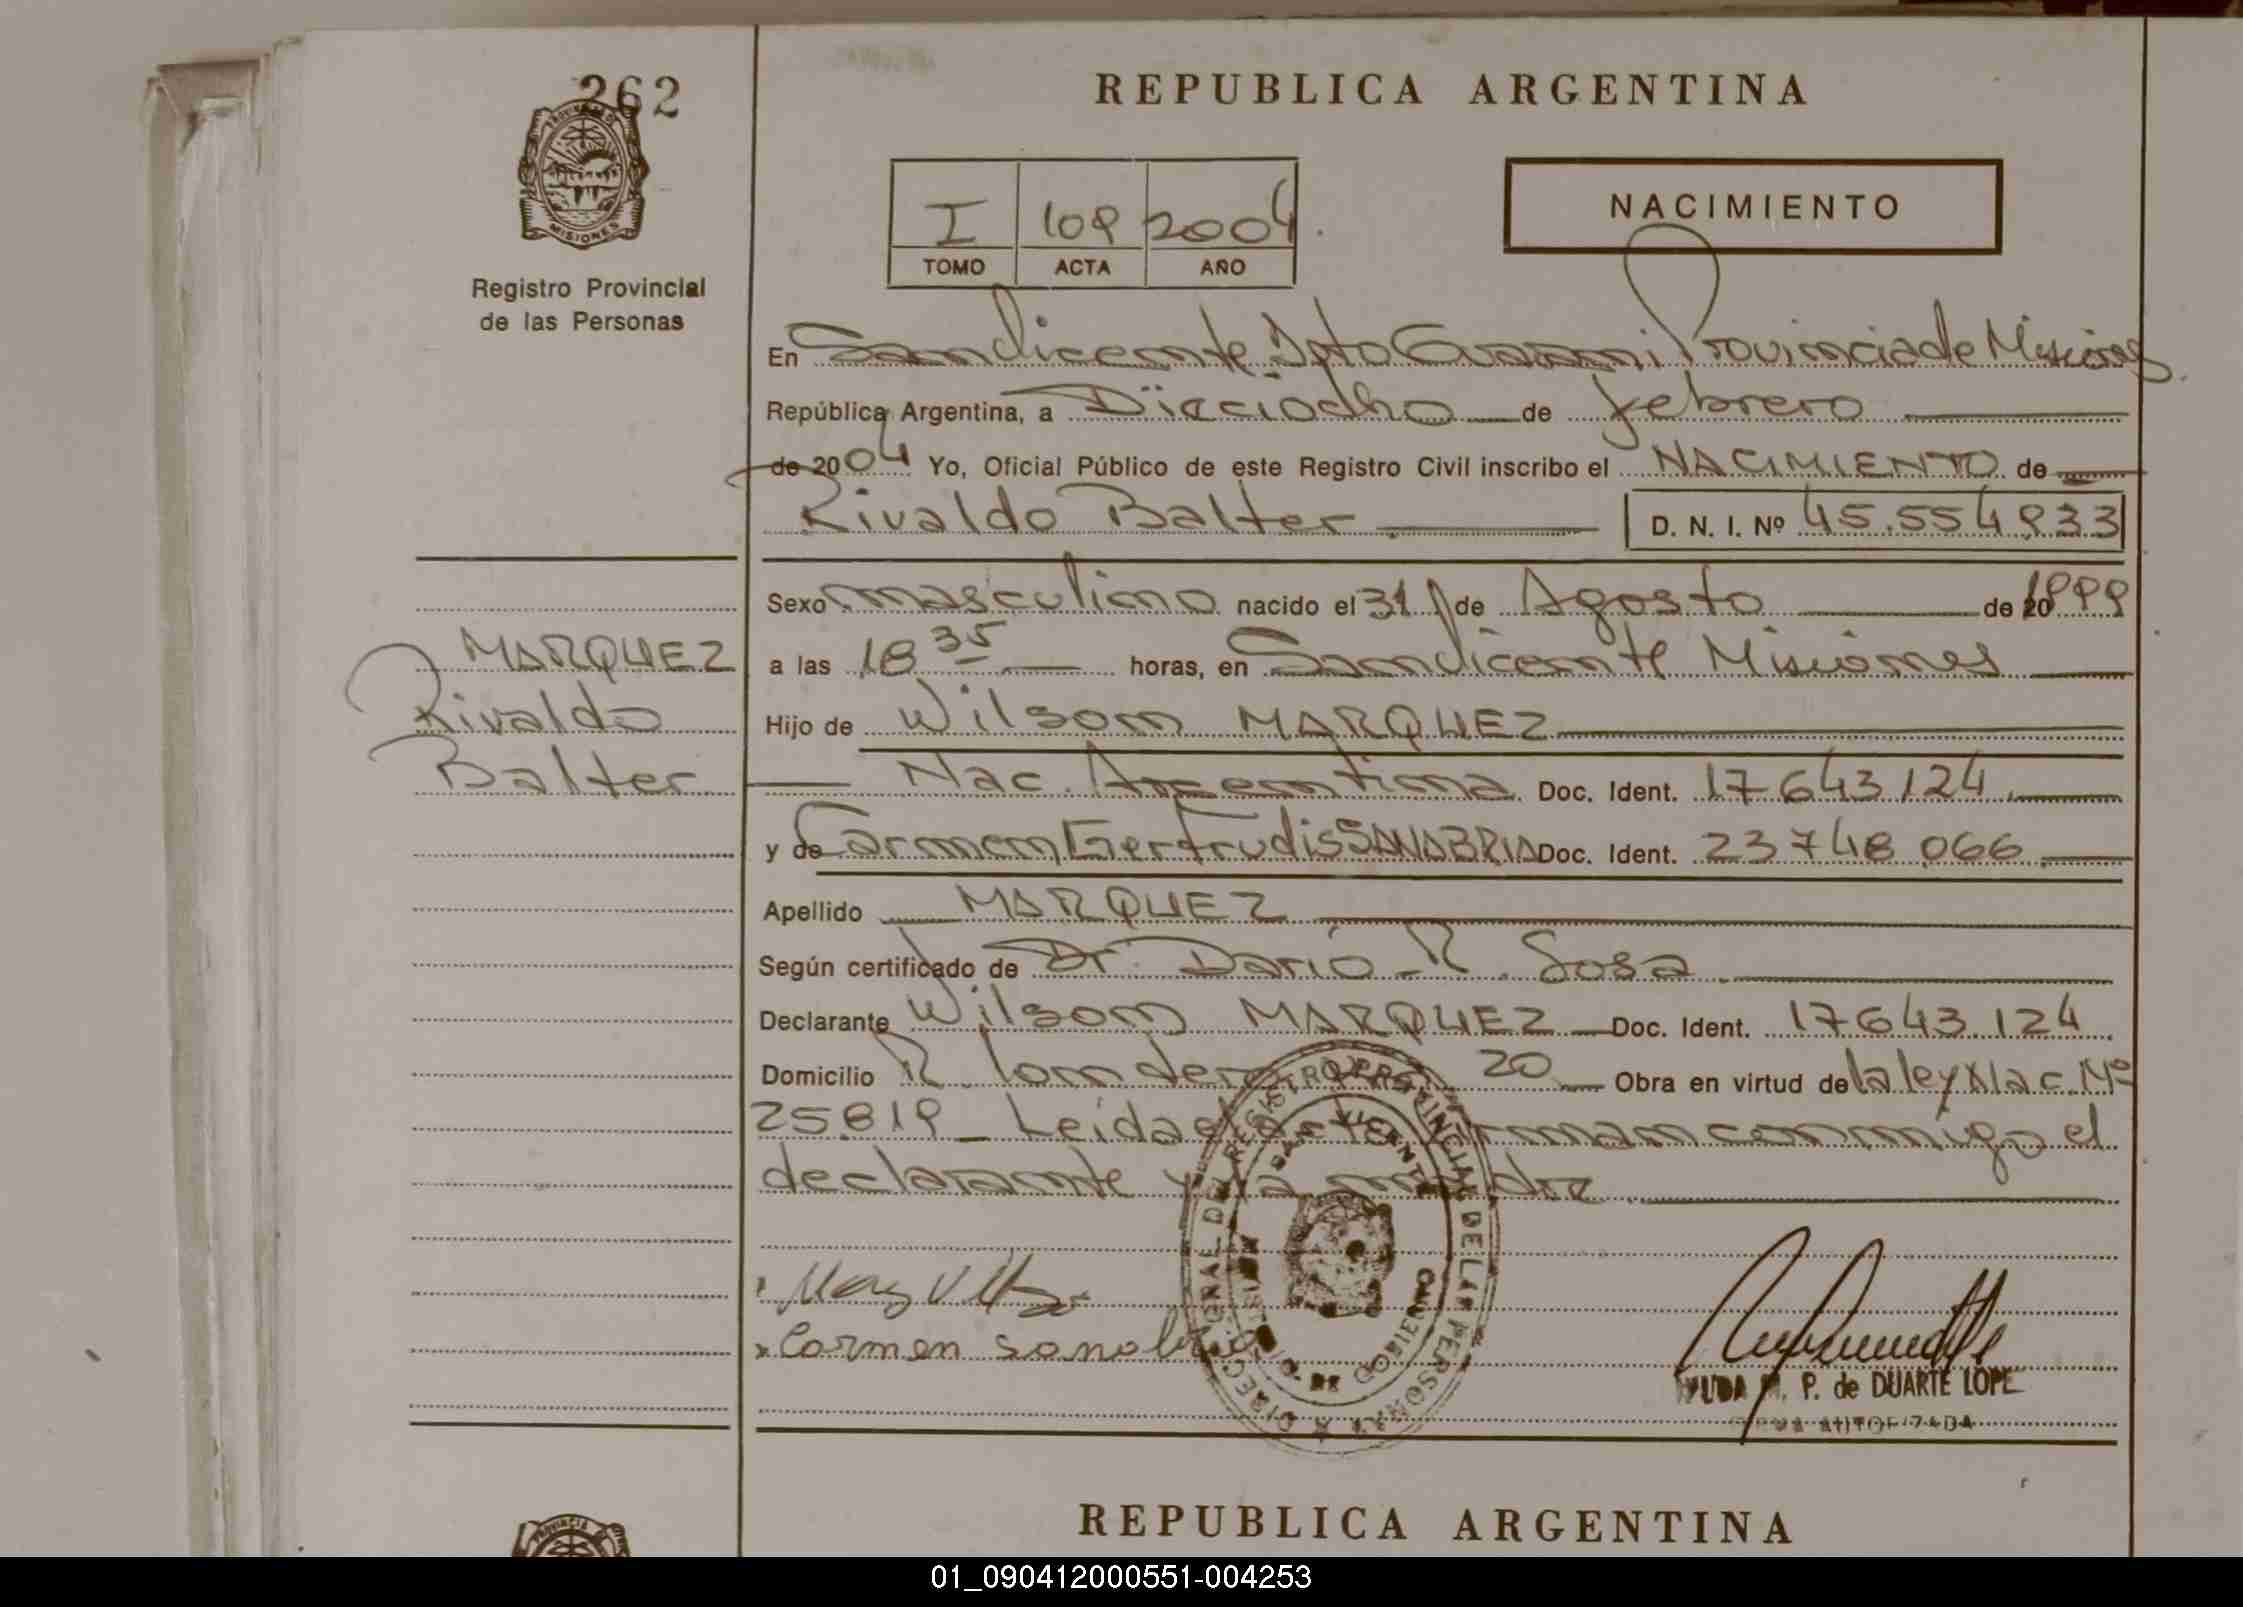 262
PROVINCIA DE
MISIONES
Registro Provincial
de las Personas
REPUBLICA ARGENTINA
I 109 2004
TOMO ACTA AÑO
NACIMIENTO
En San Vicente Dpto Guaraní Provincia de Misiones
República Argentina, a Dieciocho de febrero
de 2004 Yo, Oficial Público de este Registro Civil inscribo el NACIMIENTO de
Rivaldo Balter D. N. I. Nº 45.554.933
Sexo masculino nacido el 31 de Agosto de 20 1999
MARQUEZ
Rivaldo
Balter
a las 18 35 horas, en San Vicente Misiones
Hijo de Wilson MARQUEZ
Nac. Argentina Doc. Ident. 17643.124
y de Carmen Gertrudis SANABRIA Doc. Ident. 23748.066
Apellido MARQUEZ
Según certificado de Dr. Darío R. Sosa
Declarante Wilson MARQUEZ Doc. Ident. 17643.124
Domicilio R. 20 Obra en virtud de la ley Nac. Nº
25819 - Leida el acta firman conmigo el
declarante y la madre
Carmen sanabria
DIREC. GRAL. DEL REGISTRO PROVINCIAL DE LAS PERSONAS
P. de DUARTE LOPE
REPUBLICA ARGENTINA
PROVINCIA DE
01_090412000551-004253